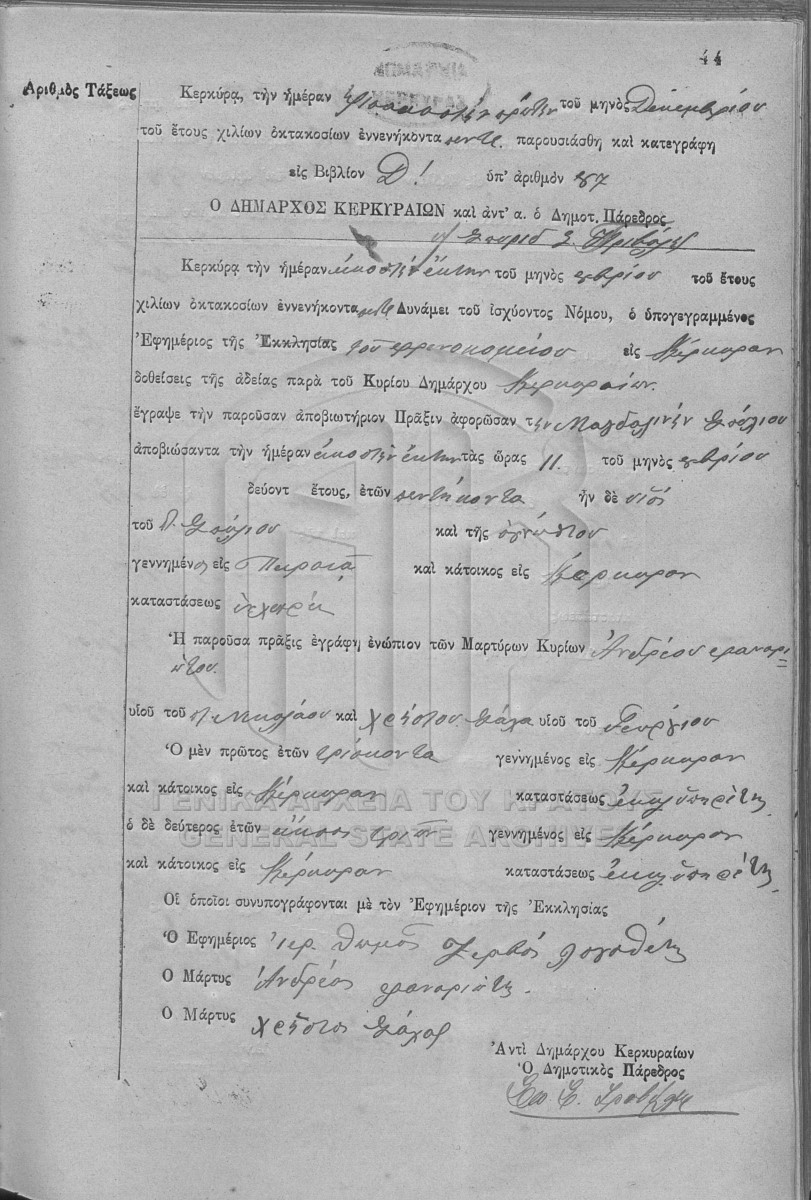 44
ΔΗΜΑΡΧΙΑ
ΚΕΡΚΥΡΑΣ
Ἀριθμὸς Τάξεως
Κερκύρᾳ, τὴν ἡμέραν πρώτην τοῦ μηνὸς Δεκεμβρίου
τοῦ ἔτους χιλίων ὀκτακοσίων ἐννενήκοντα πέντε παρουσιάσθη καὶ κατεγράφη
εἰς Βιβλίον Δ! ὑπ' ἀριθμὸν 87
Ο ΔΗΜΑΡΧΟΣ ΚΕΡΚΥΡΑΙΩΝ καὶ ἀντ' α. ὁ Δημοτ. Πάρεδρος
Σπυρίδ Σ.
Κερκύρᾳ τὴν ἡμέραν εἰκοστὴν ἕκτην τοῦ μηνὸς 9βρίου τοῦ ἔτους
χιλίων ὀκτακοσίων ἐννενήκοντα πέντε Δυνάμει τοῦ ἰσχύοντος Νόμου, ὁ ὑπογεγραμμένος
Ἐφημέριος τῆς Ἐκκλησίας τοῦ φρενοκομείου εἰς Κέρκυραν
δοθείσεις τῆς ἀδείας παρὰ τοῦ Κυρίου Δημάρχου Κερκυραίων
ἔγραψε τὴν παροῦσαν ἀποβιωτήριον Πρᾶξιν ἀφορῶσαν τὴν Μαγδαληνὴν
ἀποβιώσαντα τὴν ἡμέραν εἰκοστὴν ἕκτην τὰς ὥρας 11 τοῦ μηνὸς 9βρίου
δεύοντ ἔτους, ἐτῶν πεντήκοντα ἦν δὲ υἱὸς
τοῦ καὶ τῆς ἀγνώστου
γεννημένος εἰς Πειραιᾶ καὶ κάτοικος εἰς Κέρκυραν
καταστάσεως
Ἡ παροῦσα πρᾶξις ἐγράφη ἐνώπιον τῶν Μαρτύρων Κυρίων Ἀνδρέου
υἱοῦ τοῦ Νικολάου καὶ Χρήστου υἱοῦ τοῦ Γεωργίου
Ὁ μὲν πρῶτος ἐτῶν τριάκοντα γεννημένος εἰς Κέρκυραν
καὶ κάτοικος εἰς Κέρκυραν καταστάσεως ἐκκλ ὑπηρέτης
ὁ δὲ δεύτερος ἐτῶν εἴκοσι τριῶν γεννημένος εἰς Κέρκυραν
καὶ κάτοικος εἰς Κέρκυραν καταστάσεως ἐκκλ ὑπηρέτης
Οἱ ὁποῖοι συνυπογράφονται μὲ τὸν Ἐφημέριον τῆς Ἐκκλησίας
Ὁ Ἐφημέριος ἱερ. Θωμᾶς Ζερβὸς Λογοθέτης
Ὁ Μάρτυς Ἀνδρέας
Ὁ Μάρτυς Χρῆστος
Ἀντὶ Δημάρχου Κερκυραίων
Ὁ Δημοτικὸς Πάρεδρος
ΓΕΝΙΚΑ ΑΡΧΕΙΑ ΤΟΥ ΚΡΑΤΟΥΣ
GENERAL STATE ARCHIVES